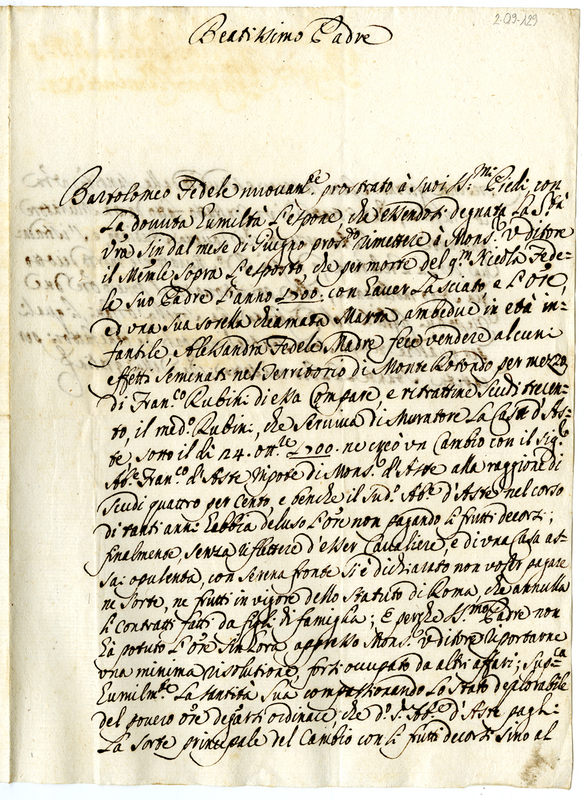 2-09-129
Beatissimo Padre
Bartolomeo Fedele nuovam.te prostrato à suoi SS.mi Piedi, con
la dovuta humiltà l'espone, che essendosi degnata la S.tà
V'ra sin dal mese di Giugno pross.o rimettere à Mons.r Uditore
il Mem.le sopra l'esposto, che per morte del q.m Nicola Fede=
le suo Padre l'anno 1700. con haver lasciato e l'O're,
ed una sua sorella chiamata Marta, ambedue in età in=
fantile, Alessandra Fedele Madre fece vendere alcuni
effetti seminati nel Territorio di Monte Rotondo per mezzo
di Fran.co Rubini di essa Compare, e ritrattine scudi trecen=
to, il med.o Rubini, che serviva di Muratore la Casa d'As=
te, sotto il dì 24. ott.re 1700. ne creò un Cambio con il Sig.r
Ab.e Fran.co d'Aste Nipote di Mons.r d'Aste alla raggione di
scudi quattro per cento, e benche il sud.o Ab.e d'Aste nel corso
di tanti anni habbia deluso l'O're non pagando li frutti decorsi;
finalmente, senza riflettere d'esser Cavaliere, e di una Casa as=
sai opulenta, con serena fronte si è dichiarato non voler pagare
ne sorte, ne frutti in vigore dello Statuto di Roma, che annulla
li contratti fatti da figli di famiglia; E perche SS.mo Padre non
hà potuto l'O're sin hora appresso Mons.r Uditore riportarne
una minima risolutione, forsi occupato da altri affari; Sup.ca
humilm.te la Santità Sua compassionando lo stato deplorabile
del povero O're degnarsi ordinare, che d.o S.r Ab.e d'Aste paghi
la sorte principale del Cambio con li frutti decorsi sino al